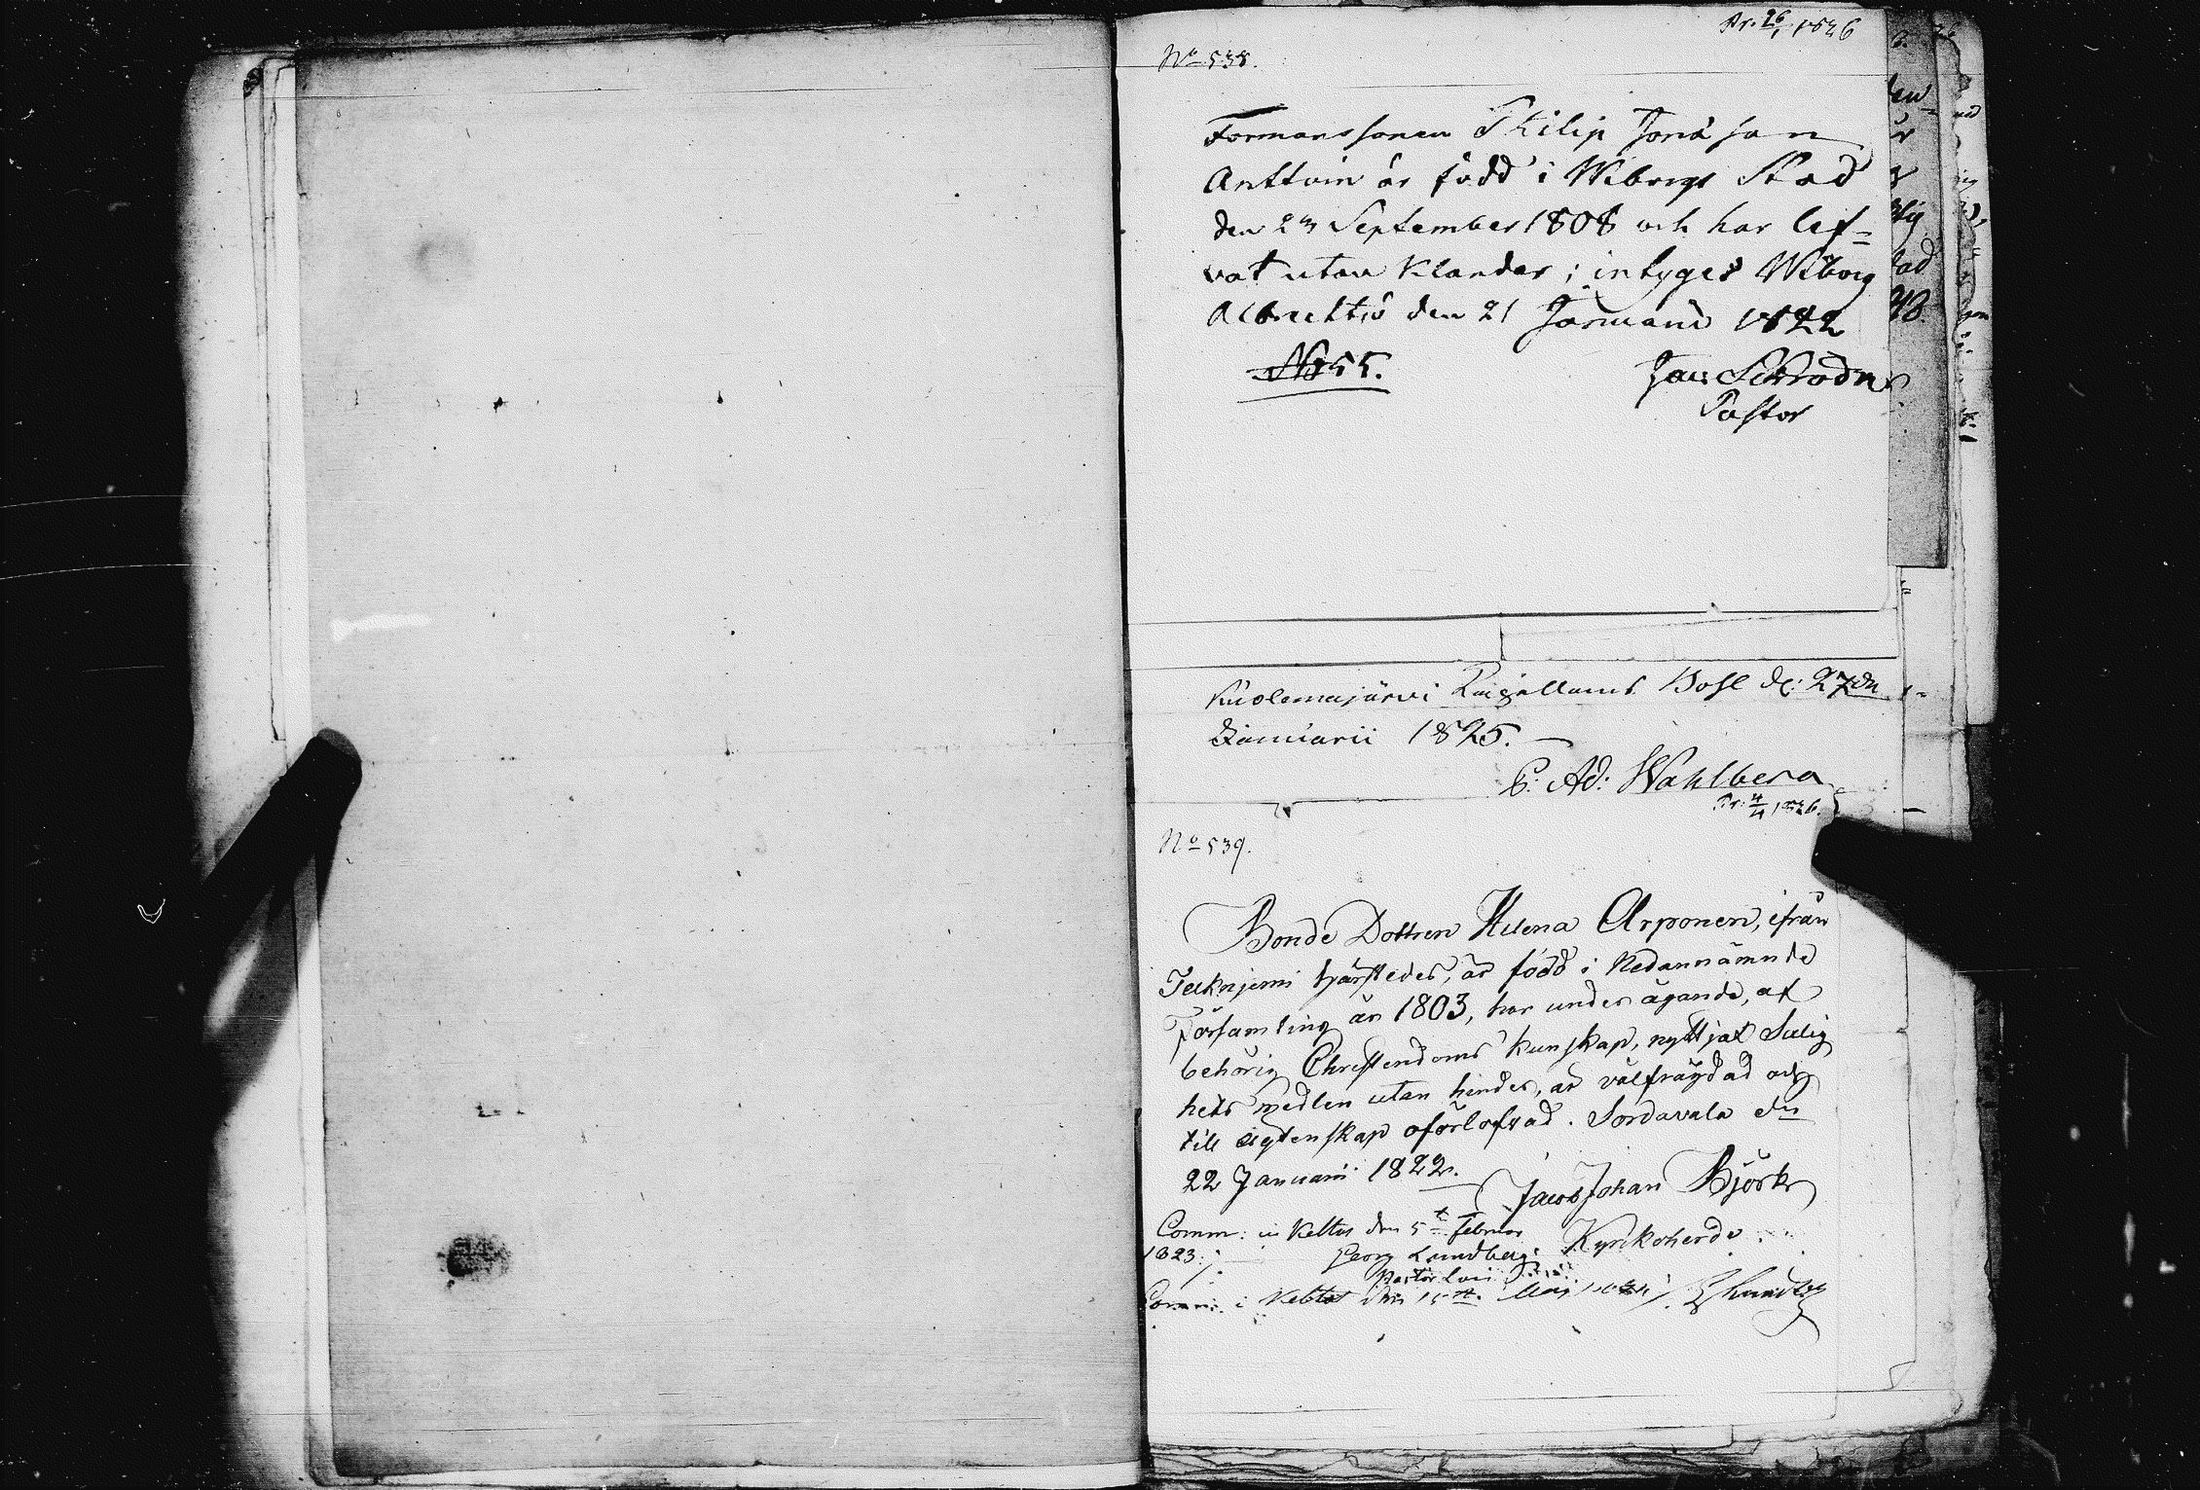 Pr. 26/1 1826
No 538.
Formanssonen Philip Jonas son
Anttoin är född i Wiborgs Stad
den 23 September 1808 och har lef=
vat utan Klander; intygas Wiborg
den 21 Januarii 1822
No 55.
Pastor
Kuolemajärvi Boſl d: 27de
Januarii 1825.
C: Ad: Wahlberg
Pr: 4/4 1826.
No 539.
Bonde Dottren Helena Arponen, ifrån
härstedes, är född i Nedannämnde
Församling år 1803, har under ägande, af
behörig Christendoms kunskap, nyttjat Salig
hets medlen utan hinder, är välfrägdad och
till ägtenskap oförlofvad. Sordavala den
22 Januarii 1822.
Jacob Johan Björk
Kyrkoherde
Comm: i Keltis den 5te Februar
1823.
Georg Lundberg
Pastor Loci
Comm: i Keltis den 15te Maj